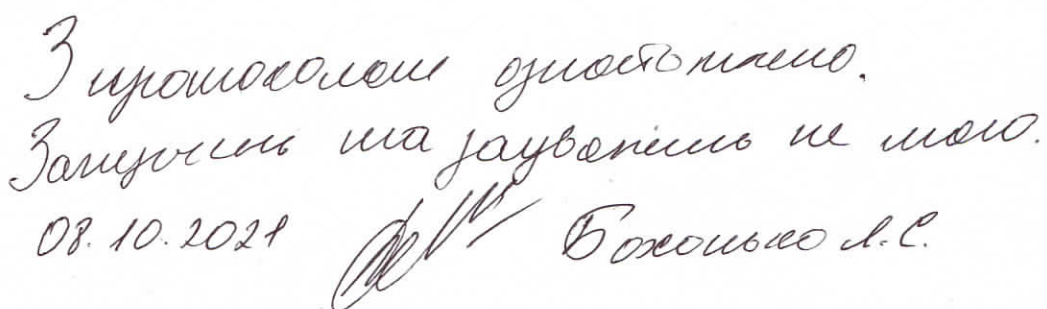 З протоколом ознайомлено.
Заперечень та зауважень не маю.
08.10.2021 Бохонько Л.С.